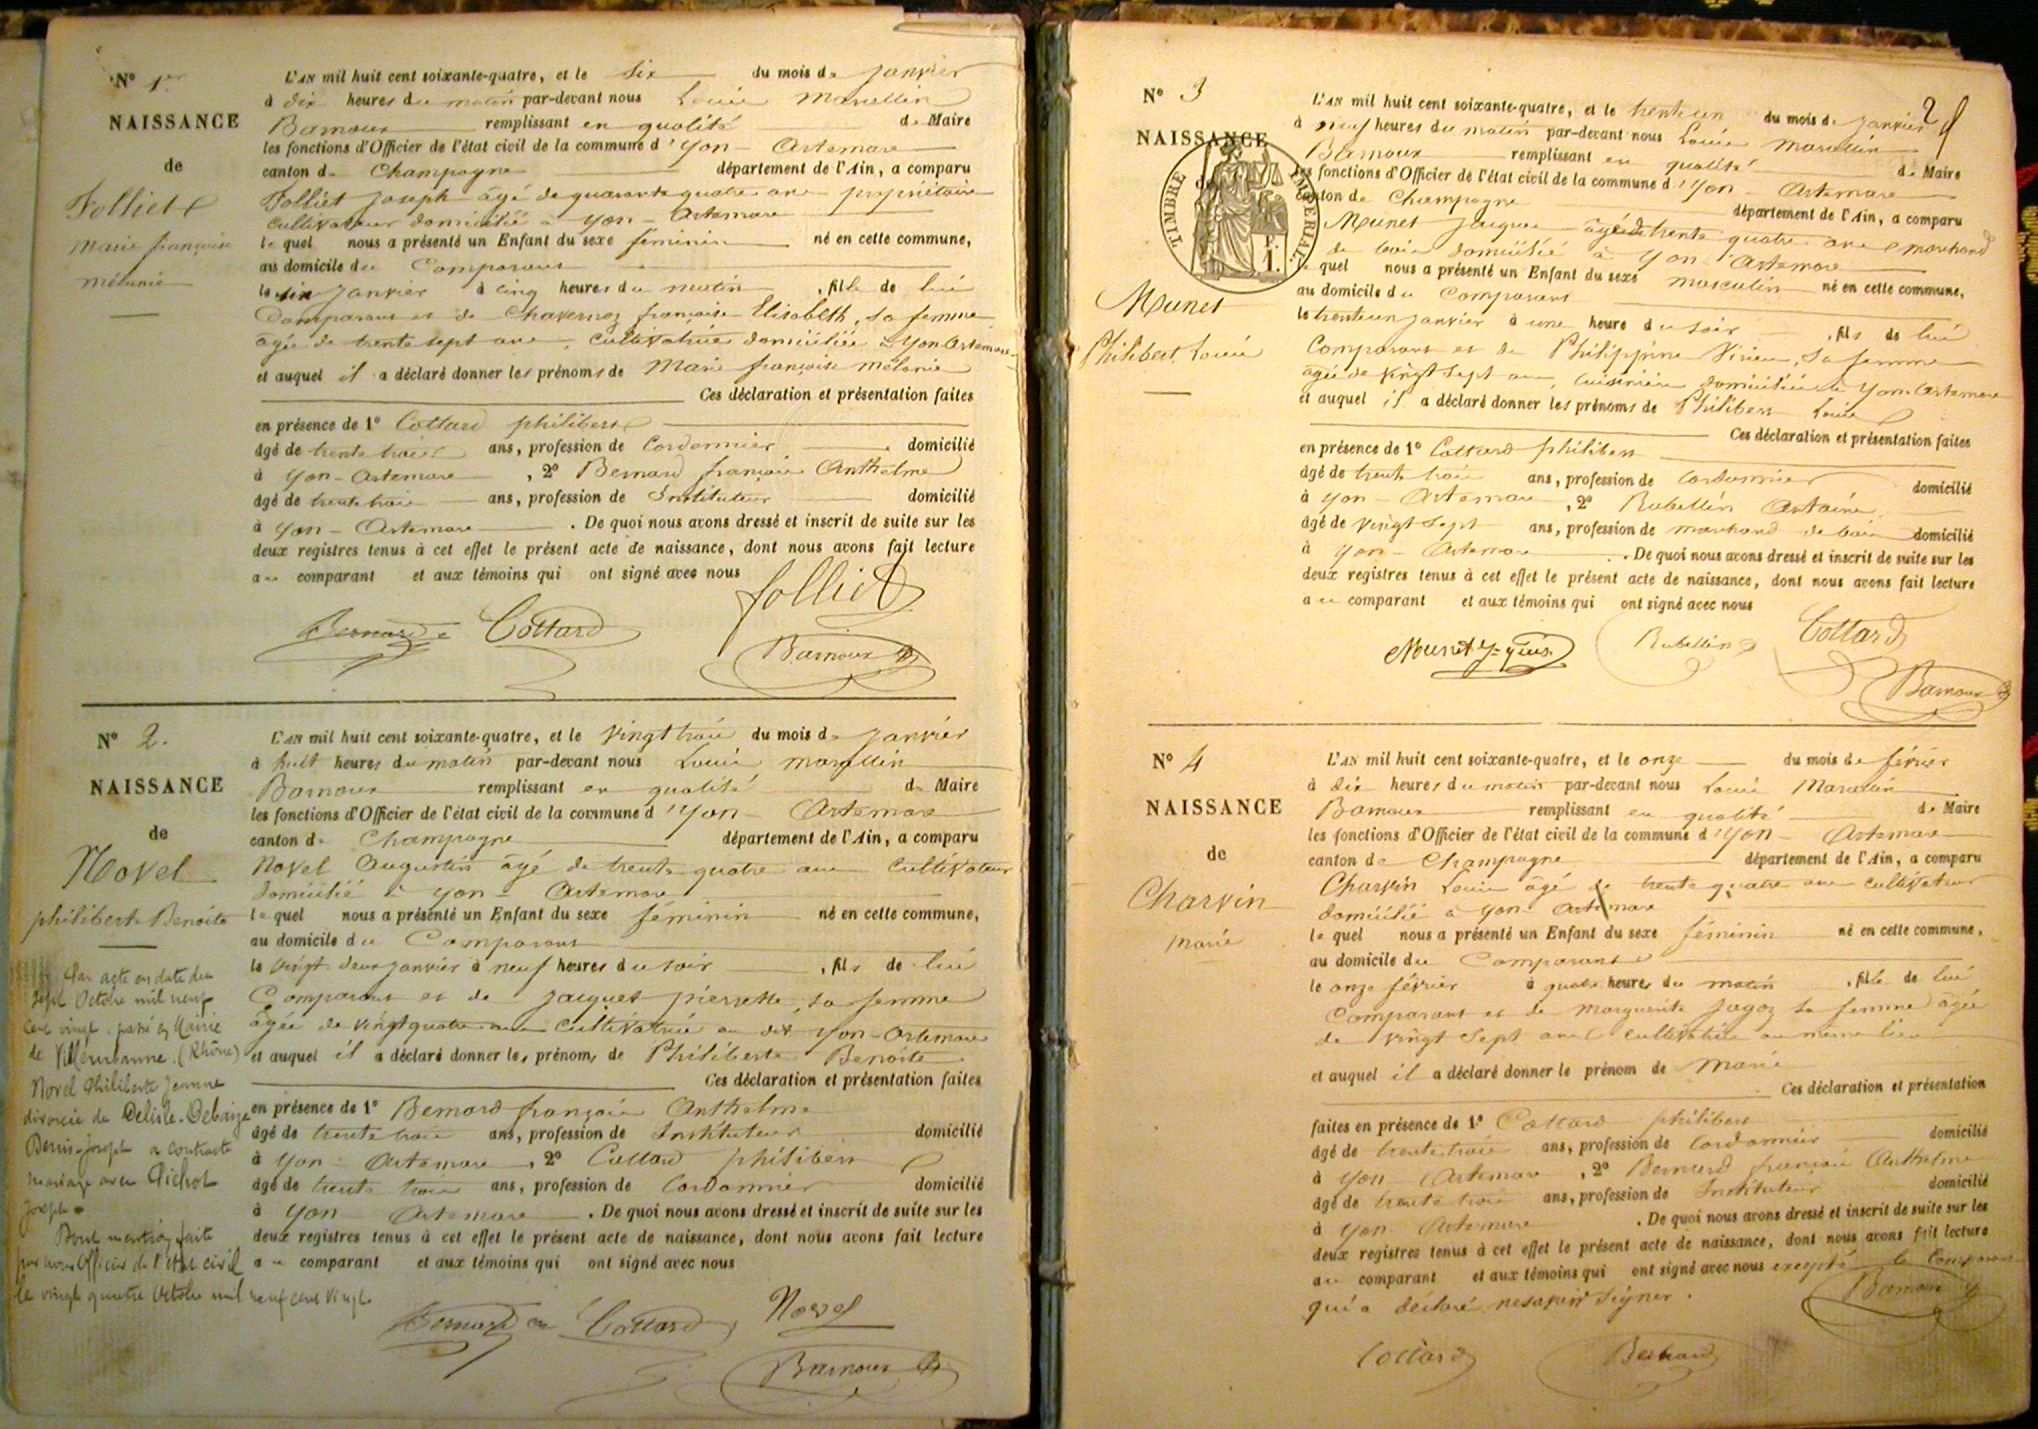 N° 1er
NAISSANCE
de
Folliet
Marie françoise
mélanie
L'AN mil huit cent soixante-quatre, et le Six du mois de Janvier
à dix heures du matin par-devant nous Louis Marcellin
Barnoux remplissant en qualité de Maire
les fonctions d'Officier de l'état civil de la commune d'Yon-Artemare
canton de Champagne département de l'Ain, a comparu
Folliet Joseph âgé de quarante quatre ans propriétaire
Cultivateur domicilié à Yon-Artemare
lequel nous a présenté un Enfant du sexe féminin né en cette commune,
au domicile du Comparant
le six Janvier à cinq heures du matin, fille de lui
Comparant et de Chavernoz françoise Elisabeth, sa femme
âgée de trente sept ans, cultivatrice domiciliée à Yon-Artemare
et auquel il a déclaré donner les prénoms de Marie françoise mélanie
Ces déclaration et présentation faites
en présence de 1° Cottard philibert
âgé de trente trois ans, profession de Cordonnier domicilié
à Yon-Artemare, 2° Bernard françois Anthelme
âgé de trente trois ans, profession de Instituteur domicilié
à Yon-Artemare. De quoi nous avons dressé et inscrit de suite sur les
deux registres tenus à cet effet le présent acte de naissance, dont nous avons fait lecture
au comparant et aux témoins qui ont signé avec nous
folliet
Bernard Cottard
Barnoux
N° 2.
NAISSANCE
de
Novel
philiberte Benoite
Par acte en date du
sept Octobre mil neuf
cent vingt passé en Mairie
de Villeurbanne (Rhône)
Novel Philiberte Jeanne
divorcée de Delisle-Debaize
Denis-Joseph a contracté
mariage avec Pichot
Joseph.
Dont mention faite
par nous Officier de l'état civil
le vingt quatre Octobre mil neuf cent vingt
L'AN mil huit cent soixante-quatre, et le vingt trois du mois de Janvier
à huit heures du matin par-devant nous Louis Marcellin
Barnoux remplissant en qualité de Maire
les fonctions d'Officier de l'état civil de la commune d'Yon-Artemare
canton de Champagne département de l'Ain, a comparu
Novel Augustin âgé de trente quatre ans Cultivateur
domicilié à Yon-Artemare
lequel nous a présenté un Enfant du sexe féminin né en cette commune,
au domicile du Comparant
le vingt deux Janvier à neuf heures du soir, fils de lui
Comparant et de Jacquet pierrette, sa femme
âgée de vingt quatre ans cultivatrice au dit Yon-Artemare
et auquel il a déclaré donner les prénoms de Philiberte Benoite
Ces déclaration et présentation faites
en présence de 1° Bernard françois Anthelme
âgé de trente trois ans, profession de Instituteur domicilié
à Yon-Artemare, 2° Cottard philibert
âgé de trente trois ans, profession de Cordonnier domicilié
à Yon-Artemare. De quoi nous avons dressé et inscrit de suite sur les
deux registres tenus à cet effet le présent acte de naissance, dont nous avons fait lecture
au comparant et aux témoins qui ont signé avec nous
Bernard Cottard Novel
Barnoux
2
N° 3
NAISSANCE
de
TIMBRE IMPERIAL.
1F.
Munet
Philibert Louis
L'AN mil huit cent soixante-quatre, et le trente un du mois de Janvier
à neuf heures du matin par-devant nous Louis Marcellin
Barnoux remplissant en qualité de Maire
les fonctions d'Officier de l'état civil de la commune d'Yon-Artemare
canton de Champagne département de l'Ain, a comparu
Munet Jacques âgé de trente quatre ans marchand
de bois domicilié à Yon-Artemare
lequel nous a présenté un Enfant du sexe masculin né en cette commune,
au domicile du Comparant
le trente un Janvier à une heure du soir, fils de lui
Comparant et de Philippine Virieu, sa femme
âgée de vingt sept ans, cuisinière domiciliée à Yon-Artemare
et auquel il a déclaré donner les prénoms de Philibert Louis
Ces déclaration et présentation faites
en présence de 1° Cottard philibert
âgé de trente trois ans, profession de Cordonnier domicilié
à Yon-Artemare, 2° Rubellin Antoine
âgé de vingt sept ans, profession de marchand de bois domicilié
à Yon-Artemare. De quoi nous avons dressé et inscrit de suite sur les
deux registres tenus à cet effet le présent acte de naissance, dont nous avons fait lecture
au comparant et aux témoins qui ont signé avec nous
Rubellin Cottard
Barnoux
N° 4
NAISSANCE
de
Charvin
Marie
L'AN mil huit cent soixante-quatre, et le onze du mois de février
à dix heures du matin par-devant nous Louis Marcellin
Barnoux remplissant en qualité de Maire
les fonctions d'Officier de l'état civil de la commune d'Yon-Artemare
canton de Champagne département de l'Ain, a comparu
Charvin Louis âgé de trente quatre ans cultivateur
domicilié à Yon-Artemare
lequel nous a présenté un Enfant du sexe féminin né en cette commune,
au domicile du Comparant
le onze février à quatre heures du matin, fille de lui
Comparant et de Marguerite Jagoz sa femme âgée
de vingt sept ans cultivatrice au même lieu
et auquel il a déclaré donner le prénom de Marie
Ces déclaration et présentation
faites en présence de 1° Cottard philibert
âgé de trente trois ans, profession de Cordonnier domicilié
à Yon-Artemare, 2° Bernard françois Anthelme
âgé de trente trois ans, profession de Instituteur domicilié
à Yon-Artemare. De quoi nous avons dressé et inscrit de suite sur les
deux registres tenus à cet effet le présent acte de naissance, dont nous avons fait lecture
au comparant et aux témoins qui ont signé avec nous excepté le Comparant
qui a déclaré ne savoir signer.
Barnoux
Cottard Bernard